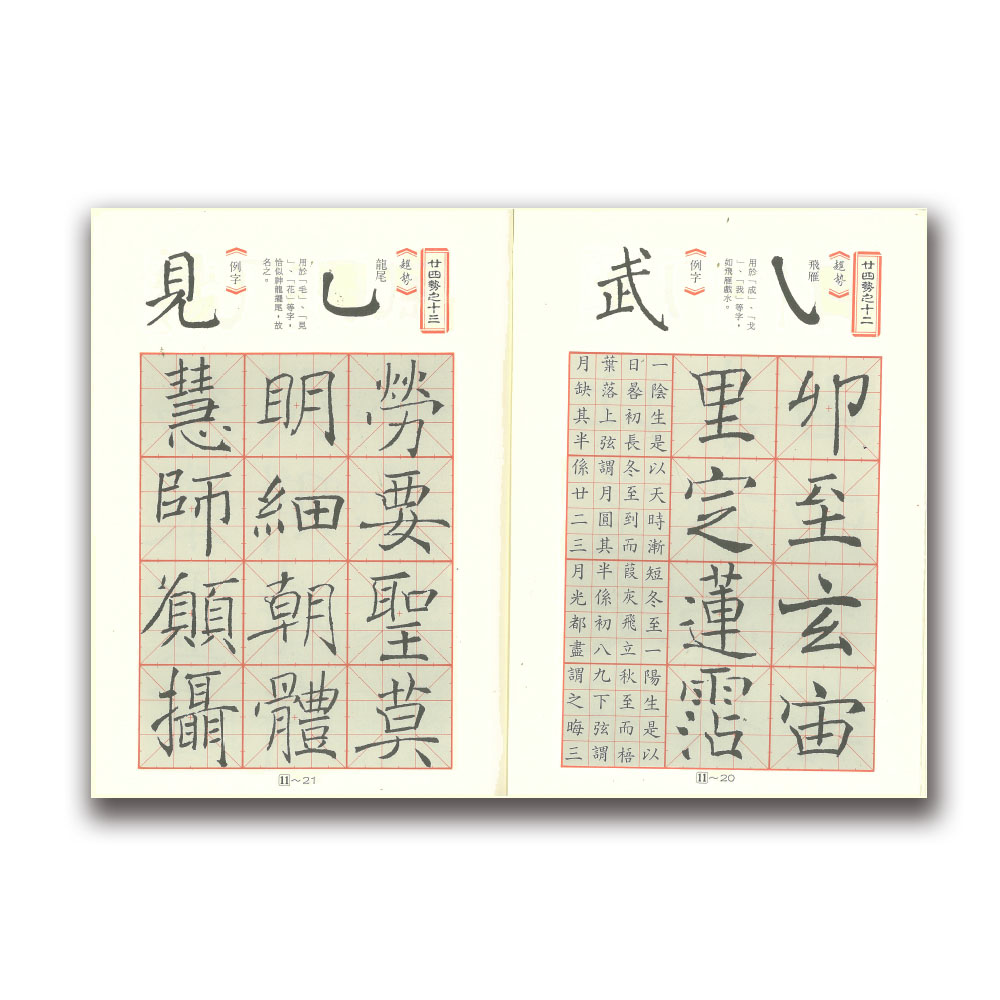 廿四勢之十二
《趯勢》
飛雁
用於「成」、「戈
」、「我」等字,
如飛雁戲水。
《例字》
武
卯至玄宙
里定蓮霑
一陰生是以天時漸短冬至一陽生是以
日晷初長冬至到而葭灰飛立秋至而梧
葉落上弦謂月圓其半係初八九下弦謂
月缺其半係廿二三月光都盡謂之晦三
11~20
廿四勢之十三
《趯勢》
龍尾
乚
用於「毛」、「見
」、「花」等字,
恰似神龍擺尾,故
名之。
《例字》
見
勞要聖莫
明細朝體
慧師攝
11~21